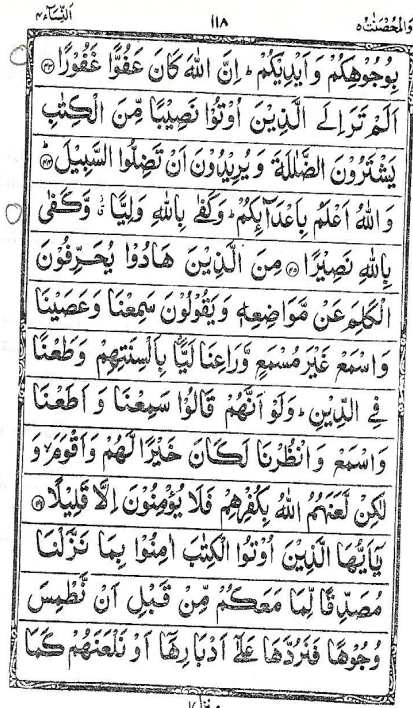 والمحصنت ٥ ١١٨ النسآء ٤
بِوُجُوْهِكُمْ وَاَيْدِيْكُمْ ؕ اِنَّ اللّٰهَ كَانَ عَفُوًّا غَفُوْرًا ﴿۴۳﴾
اَلَمْ تَرَ اِلَى الَّذِيْنَ اُوْتُوْا نَصِيْبًا مِّنَ الْكِتٰبِ
يَشْتَرُوْنَ الضَّلٰلَةَ وَيُرِيْدُوْنَ اَنْ تَضِلُّوا السَّبِيْلَ ﴿۴۴﴾ؕ
وَاللّٰهُ اَعْلَمُ بِاَعْدَآئِكُمْ ؕ وَكَفٰى بِاللّٰهِ وَلِيًّا ٭ۙ وَّكَفٰى
بِاللّٰهِ نَصِيْرًا ﴿۴۵﴾ مِنَ الَّذِيْنَ هَادُوْا يُحَرِّفُوْنَ
الْكَلِمَ عَنْ مَّوَاضِعِهٖ وَيَقُوْلُوْنَ سَمِعْنَا وَعَصَيْنَا
وَاسْمَعْ غَيْرَ مُسْمَعٍ وَّرَاعِنَا لَيًّۢا بِاَلْسِنَتِهِمْ وَطَعْنًا
فِى الدِّيْنِ ؕ وَلَوْ اَنَّهُمْ قَالُوْا سَمِعْنَا وَاَطَعْنَا
وَاسْمَعْ وَانْظُرْنَا لَكَانَ خَيْرًا لَّهُمْ وَاَقْوَمَ ۙ وَ
لٰكِنْ لَّعَنَهُمُ اللّٰهُ بِكُفْرِهِمْ فَلَا يُؤْمِنُوْنَ اِلَّا قَلِيْلًا ﴿۴۶﴾
يٰۤاَيُّهَا الَّذِيْنَ اُوْتُوا الْكِتٰبَ اٰمِنُوْا بِمَا نَزَّلْنَا
مُصَدِّقًا لِّمَا مَعَكُمْ مِّنْ قَبْلِ اَنْ نَّطْمِسَ
وُجُوْهًا فَنَرُدَّهَا عَلٰٓى اَدْبَارِهَاۤ اَوْ نَلْعَنَهُمْ كَمَا